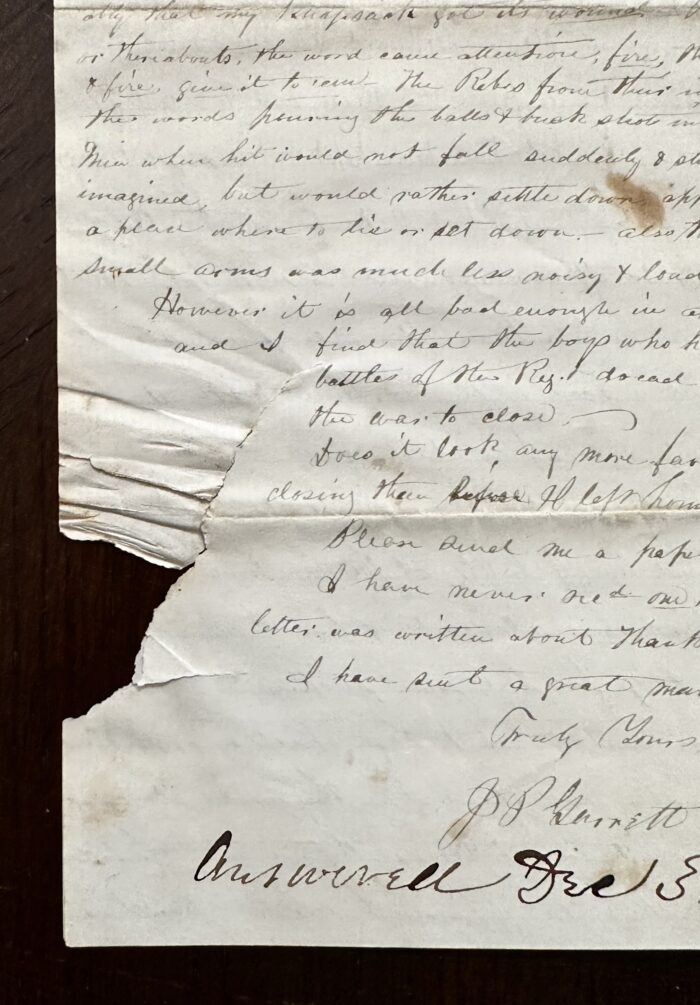 ally that my Knapsack got its wound
or thereabouts, the word came attention, fire,
& fire, give it to 'em – The Rebs from their
the woods pouring the balls & buck shots in
Men when hit would not fall suddenly &
imagined, but would rather settle down,
a place where to lie or set down. – also
small arms was much less noisy & loud
However it is all bad enough in
and I find that the boys who
battles of the Reg.t dread
the was to close
Does it look any more
closing than before I left
Please send me a
I have never rec'd one
letter was written about Thank
I have sent a great
Truly Yours
J P Garrett
Answered Dec 3